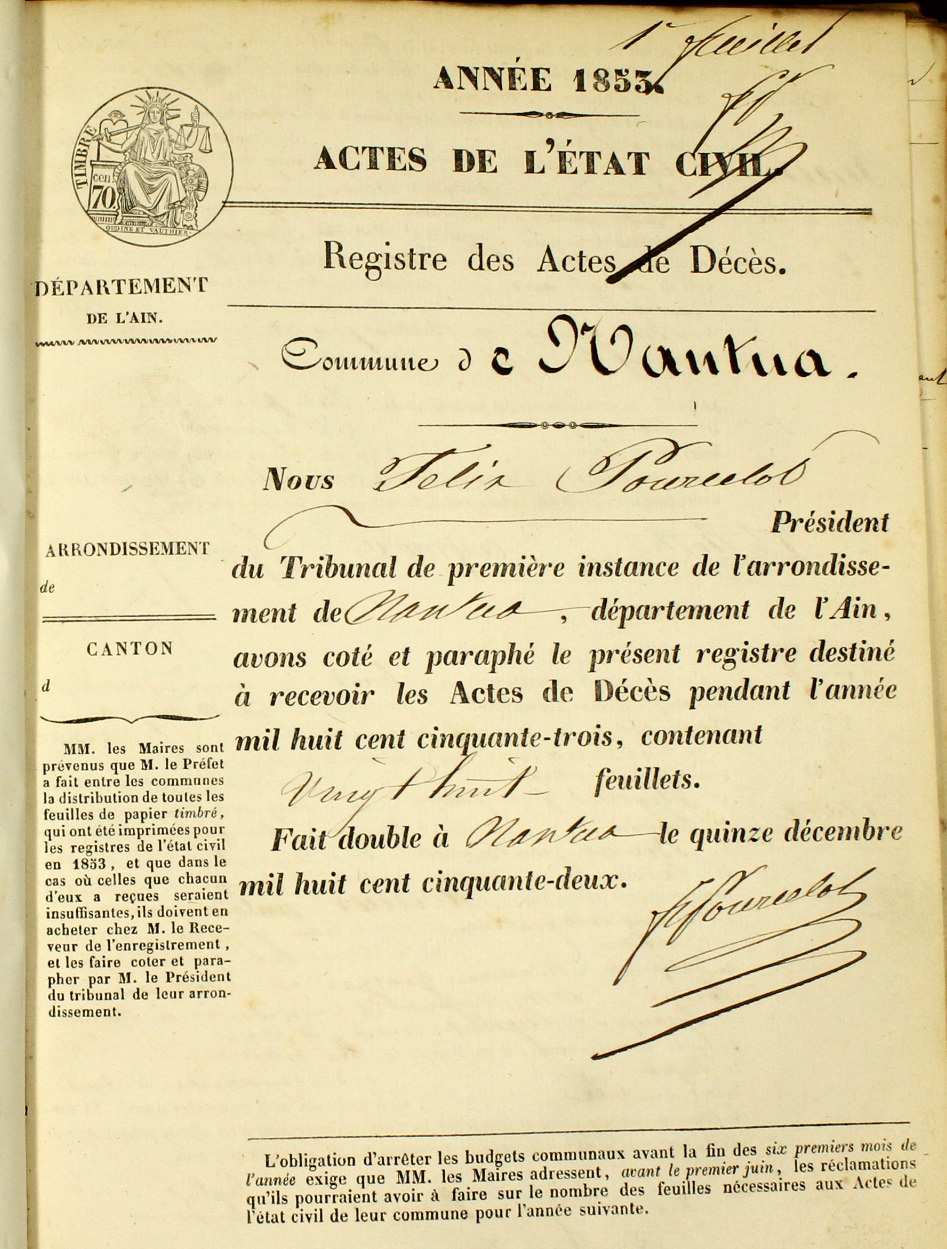 1er feuillet
ANNÉE 1853.
ACTES DE L'ÉTAT CIVIL.
TIMBRE
cen
70.
OUDINÉ ET VAUTHIER.
Registre des Actes de Décès.
DÉPARTEMENT
DE L'AIN.
Commune de Nantua.
Nous Felix Pourcelot
Président
du Tribunal de première instance de l'arrondisse-
ment de Nantua, département de l'Ain,
avons coté et paraphé le présent registre destiné
à recevoir les Actes de Décès pendant l'année
mil huit cent cinquante-trois, contenant
vingt huit feuillets.
Fait double à Nantua le quinze décembre
mil huit cent cinquante-deux.
FPourcelot
ARRONDISSEMENT
de
CANTON
d
MM. les Maires sont
prévenus que M. le Préfet
a fait entre les communes
la distribution de toutes les
feuilles de papier timbré,
qui ont été imprimées pour
les registres de l'état civil
en 1853, et que dans le
cas où celles que chacun
d'eux a reçues seraient
insuffisantes, ils doivent en
acheter chez M. le Rece-
veur de l'enregistrement,
et les faire coter et para-
pher par M. le Président
du tribunal de leur arron-
dissement.
L'obligation d'arrêter les budgets communaux avant la fin des six premiers mois de
l'année exige que MM. les Maires adressent, avant le premier juin, les réclamations
qu'ils pourraient avoir à faire sur le nombre des feuilles nécessaires aux Actes de
l'état civil de leur commune pour l'année suivante.